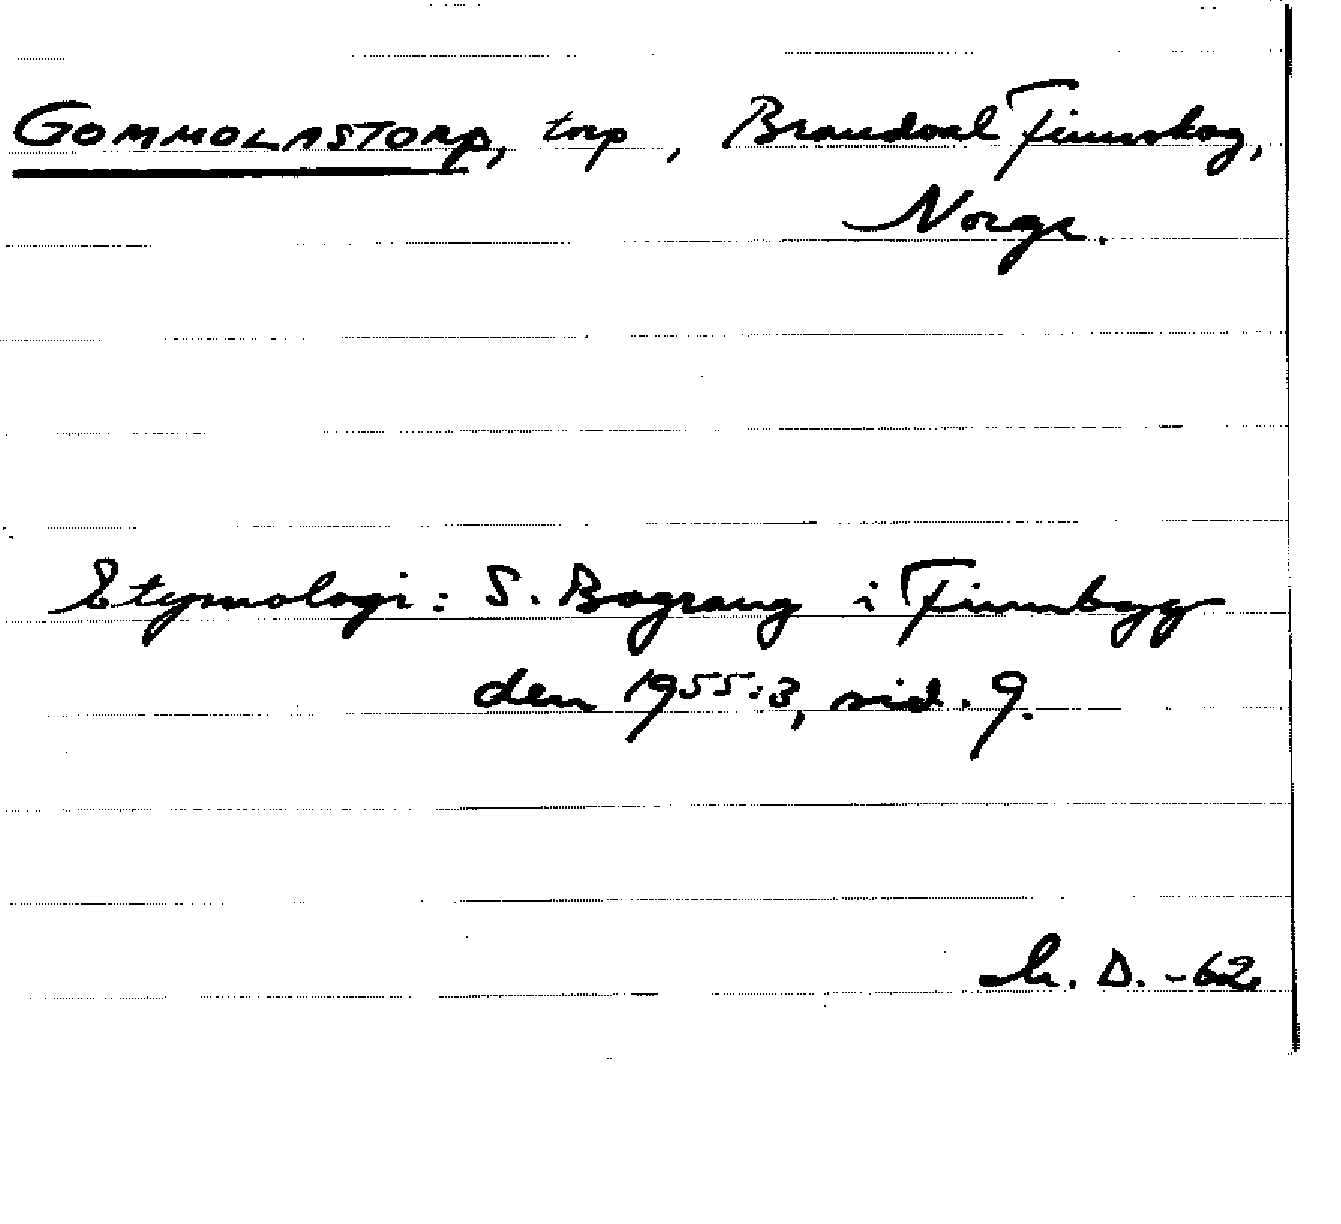 GOMMOLASTORP, torp, Brandval Finnskog,
Norge.
Etymologi: S. Bograng i Finnbygg
den 1955:3, sid. 9.
h. D. -62